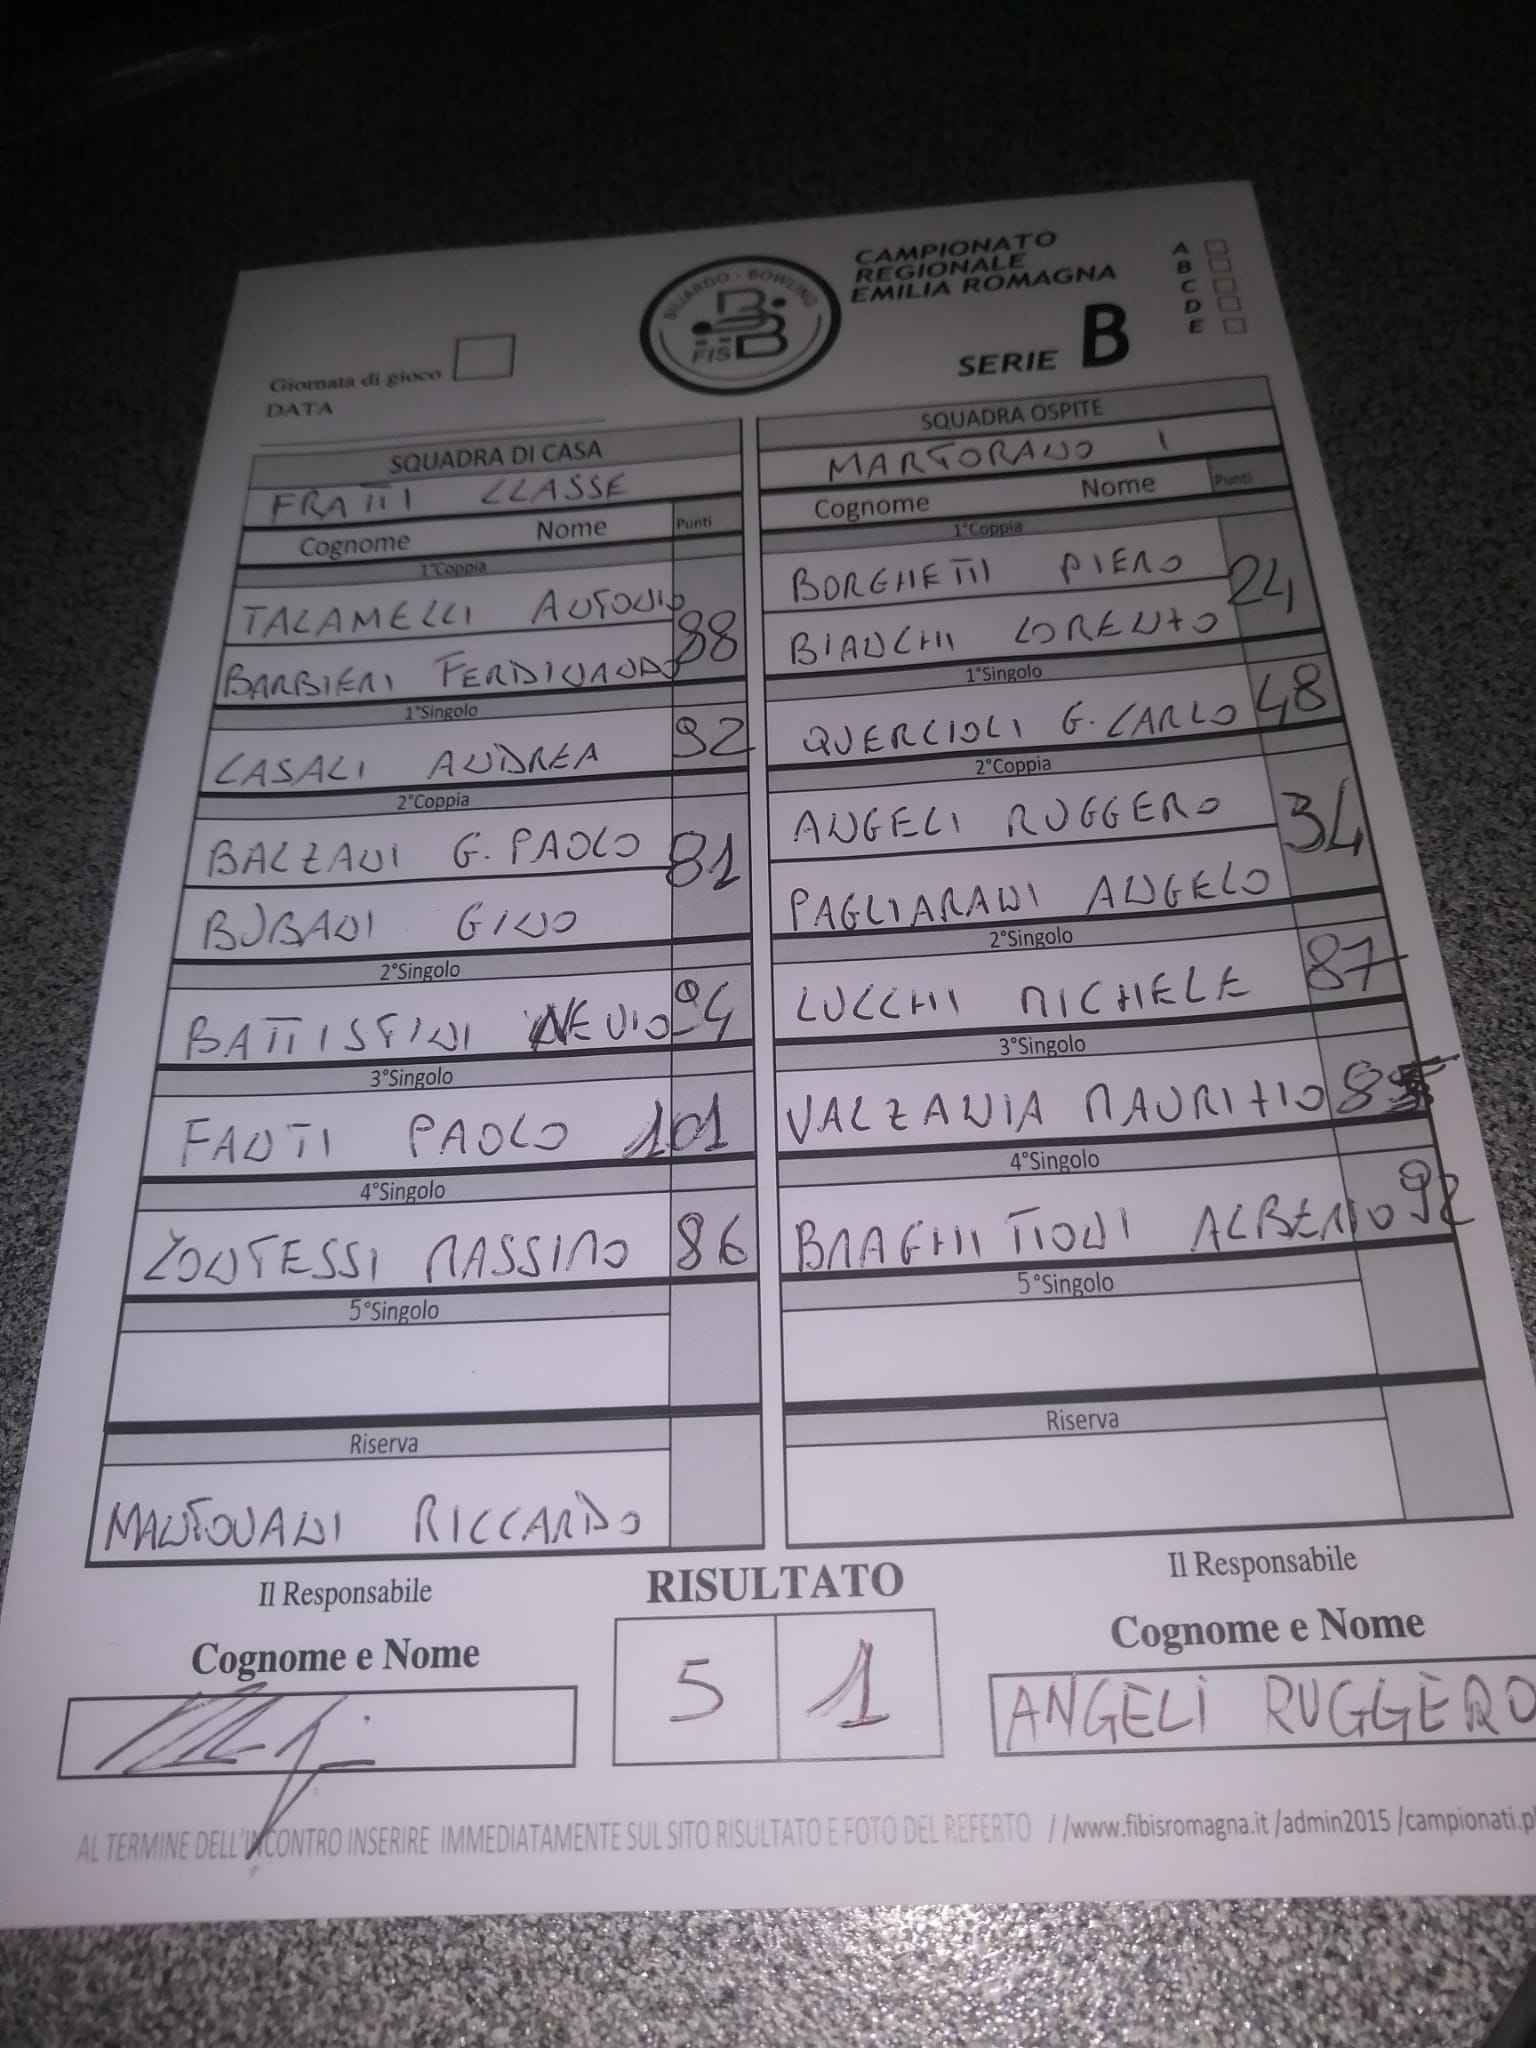 BILIARDO - BOWLING
FISBB
CAMPIONATO
REGIONALE
EMILIA ROMAGNA
SERIE B
A
B
C
D
E
Giornata di gioco
DATA
SQUADRA DI CASA
FRATTI CLASSE
Cognome Nome Punti
1°Coppia
TALAMELLI ANTONIO
88
BARBIERI FERDINANDO
1°Singolo
CASALI ANDREA 92
2°Coppia
BALZANI G. PAOLO
81
BUBANI GINO
2°Singolo
BATTISTINI NEVIO 94
3°Singolo
FANTI PAOLO 101
4°Singolo
ZONTESSI MASSIMO 86
5°Singolo
Riserva
MANTOVANI RICCARDO
SQUADRA OSPITE
MARTORANO 1
Cognome Nome Punti
1°Coppia
BORGHETTI PIERO
24
BIANCHI LORENZO
1°Singolo
QUERCIOLI G. CARLO 48
2°Coppia
ANGELI RUGGERO
34
PAGLIARANI ANGELO
2°Singolo
LUCCHI MICHELE 87
3°Singolo
VALZANIA MAURIZIO
4°Singolo
BRAGHITTONI ALBERTO 92
5°Singolo
Riserva
Il Responsabile
Cognome e Nome
RISULTATO
5 1
Il Responsabile
Cognome e Nome
ANGELI RUGGERO
AL TERMINE DELL'INCONTRO INSERIRE IMMEDIATAMENTE SUL SITO RISULTATO E FOTO DEL REFERTO //www.fibisromagna.it /admin2015 /campionati.p